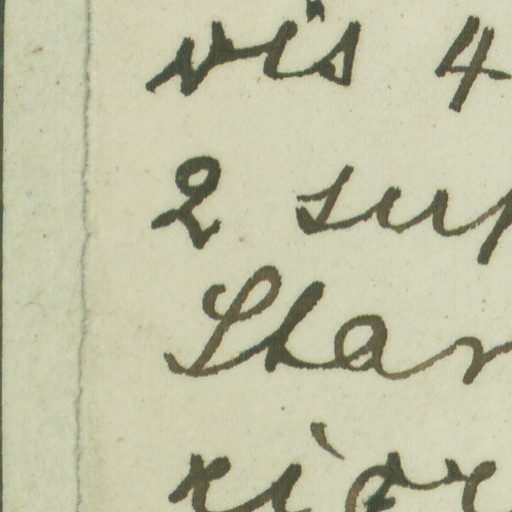 vis 4
2 sup
Star
rior